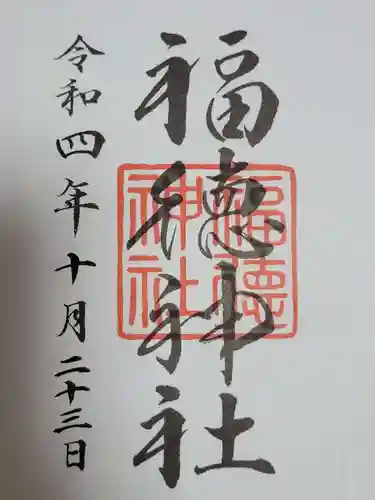 福徳神社
令和四年十月二十三日
福徳
神社